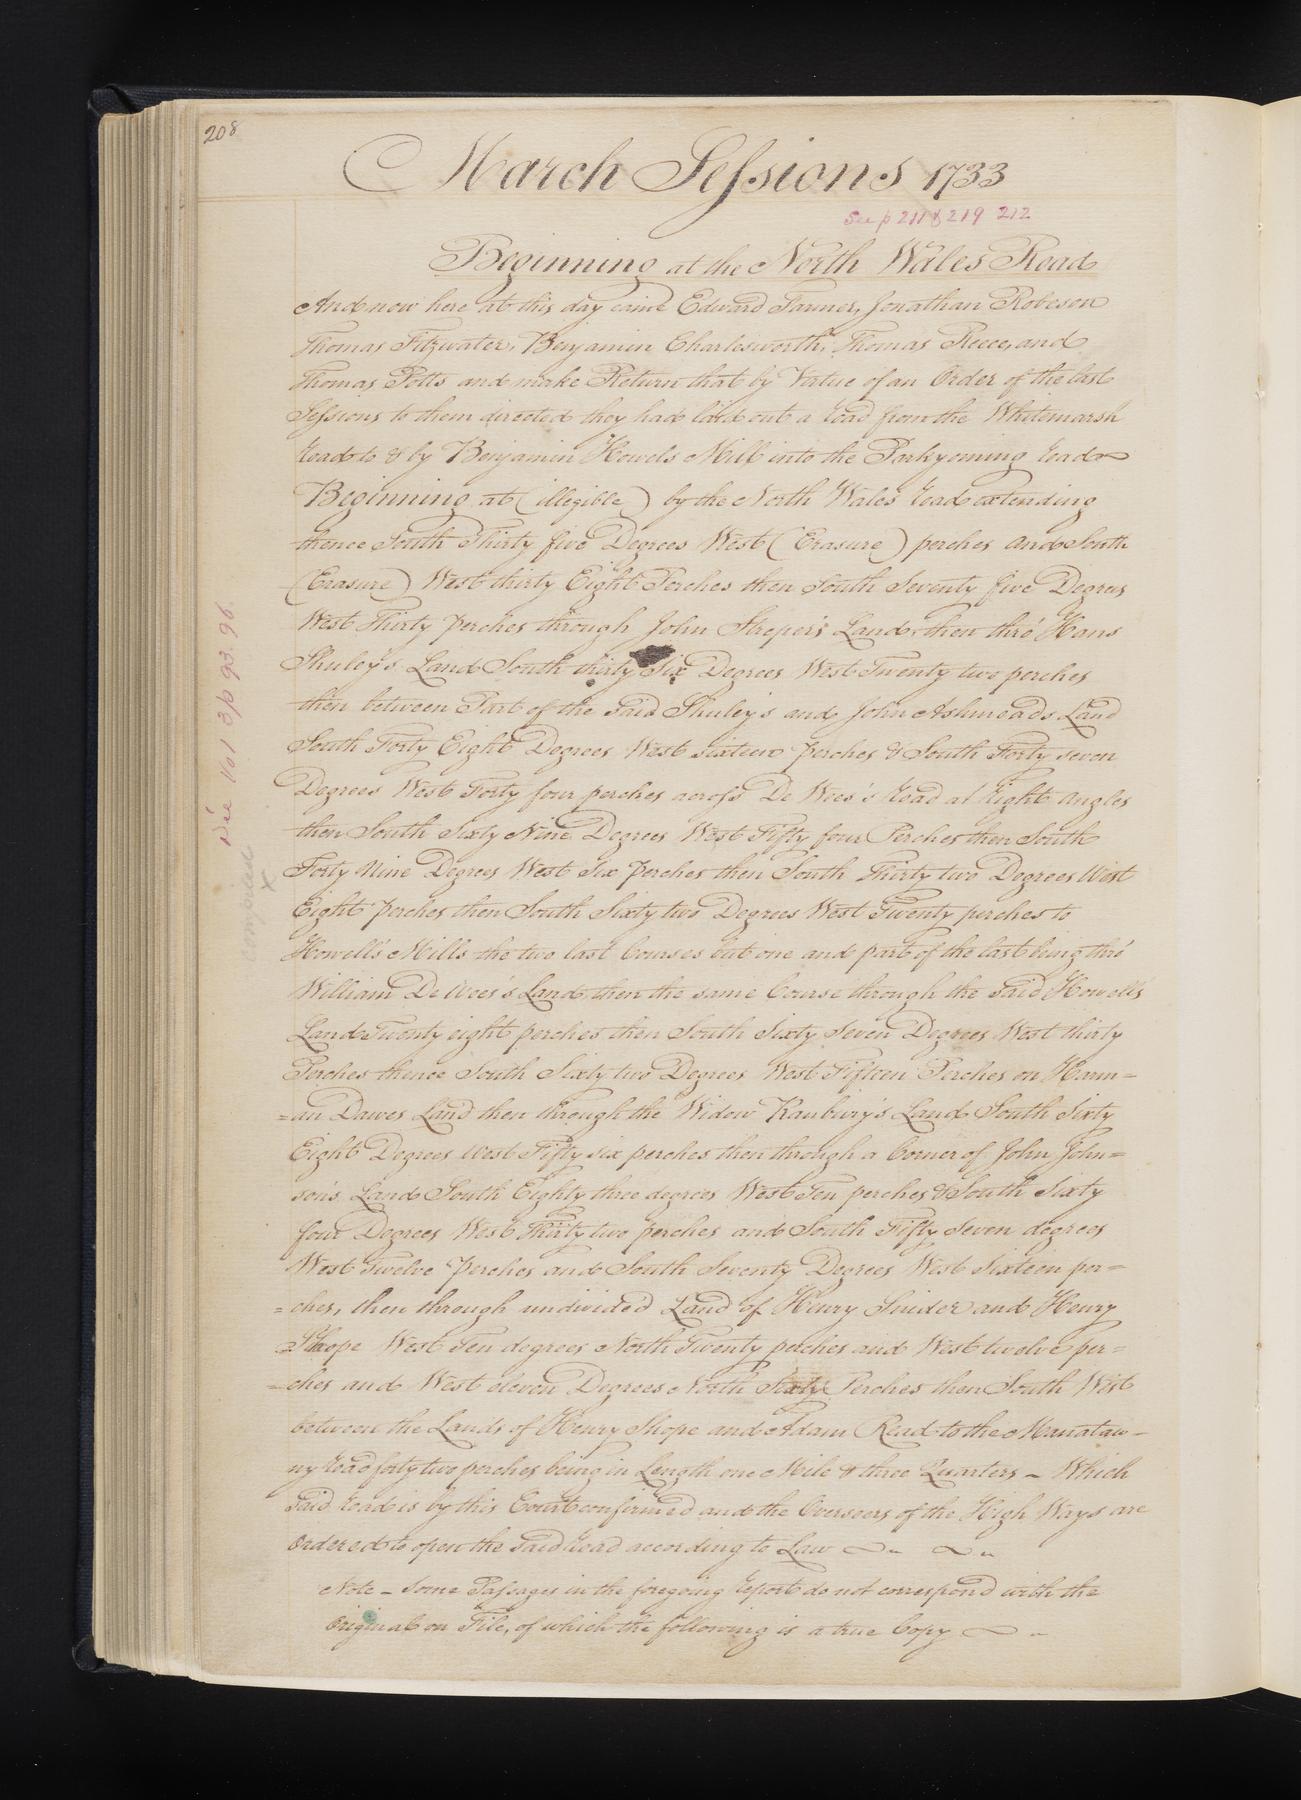 208
March Sessions 1733
See p 211 & 219 212
Beginning at the North Wales Road
And now here at this day came Edward Farmer, Jonathan Robeson
Thomas Fitzwater, Benjamin Charlesworth, Thomas Reece, and
Thomas Potts and make Return that by Virtue of an Order of the last
Sessions to them directed they had laid out a road from the Whitemarsh
road to & by Benjamin Howels Mill into the Perkyoming road
Beginning at (illegible) by the North Wales road extending
thence South Thirty five Degrees West (Erasure) perches and South
(Erasure) West thirty Eight Perches then South Seventy five Degrees
West Thirty perches through John Streper's Land, then thro' Hans
Shuley's Land South thirty Six Degrees West Twenty two perches
then between Part of the said Shuley's and John Ashmeads Land
South Forty Eight Degrees West sixteen perches & South Forty seven
Degrees West Forty four perches across De Wees's road at right angles
then South Sixty Nine Degrees West Fifty four Perches then South
Forty Nine Degrees West Six perches then South Thirty two Degrees West
Eight perches then South Sixty two Degrees West Twenty perches to
Howell's Mills the two last Courses but one and part of the last being thro'
William De Wees's Land, then the same Course through the said Howell's
Land Twenty eight perches then South Sixty Seven Degrees West thirty
Perches thence South Sixty two Degrees West Fifteen Perches on Harm=
=an Dawes Land then through the Widow Kanbury's Land South Sixty
Eight Degrees West Fifty six perches then through a Corner of John John=
son's Land South Eighty three degrees West Ten perches & South Sixty
four Degrees West Thirty two perches and South Fifty Seven degrees
West Twelve Perches and South Seventy Degrees West Sixteen per=
=ches, then through undivided Land of Henry Snider and Henry
Shope West Ten degrees North Twenty perches and West twelve per=
=ches and West eleven Degrees North Sixty Perches then South West
between the Lands of Henry Shope and Adam Read to the Manataw=
ny road forty two perches being in Length one Mile & three Quarters – Which
said road is by this Court confirmed and the Overseers of the High Ways are
ordered to open the said road according to Law
Note – Some Passages in the foregoing report do not correspond with the
Original on File, of which the following is a true Copy
See Vol 3 p 93. 96.
Compared
X